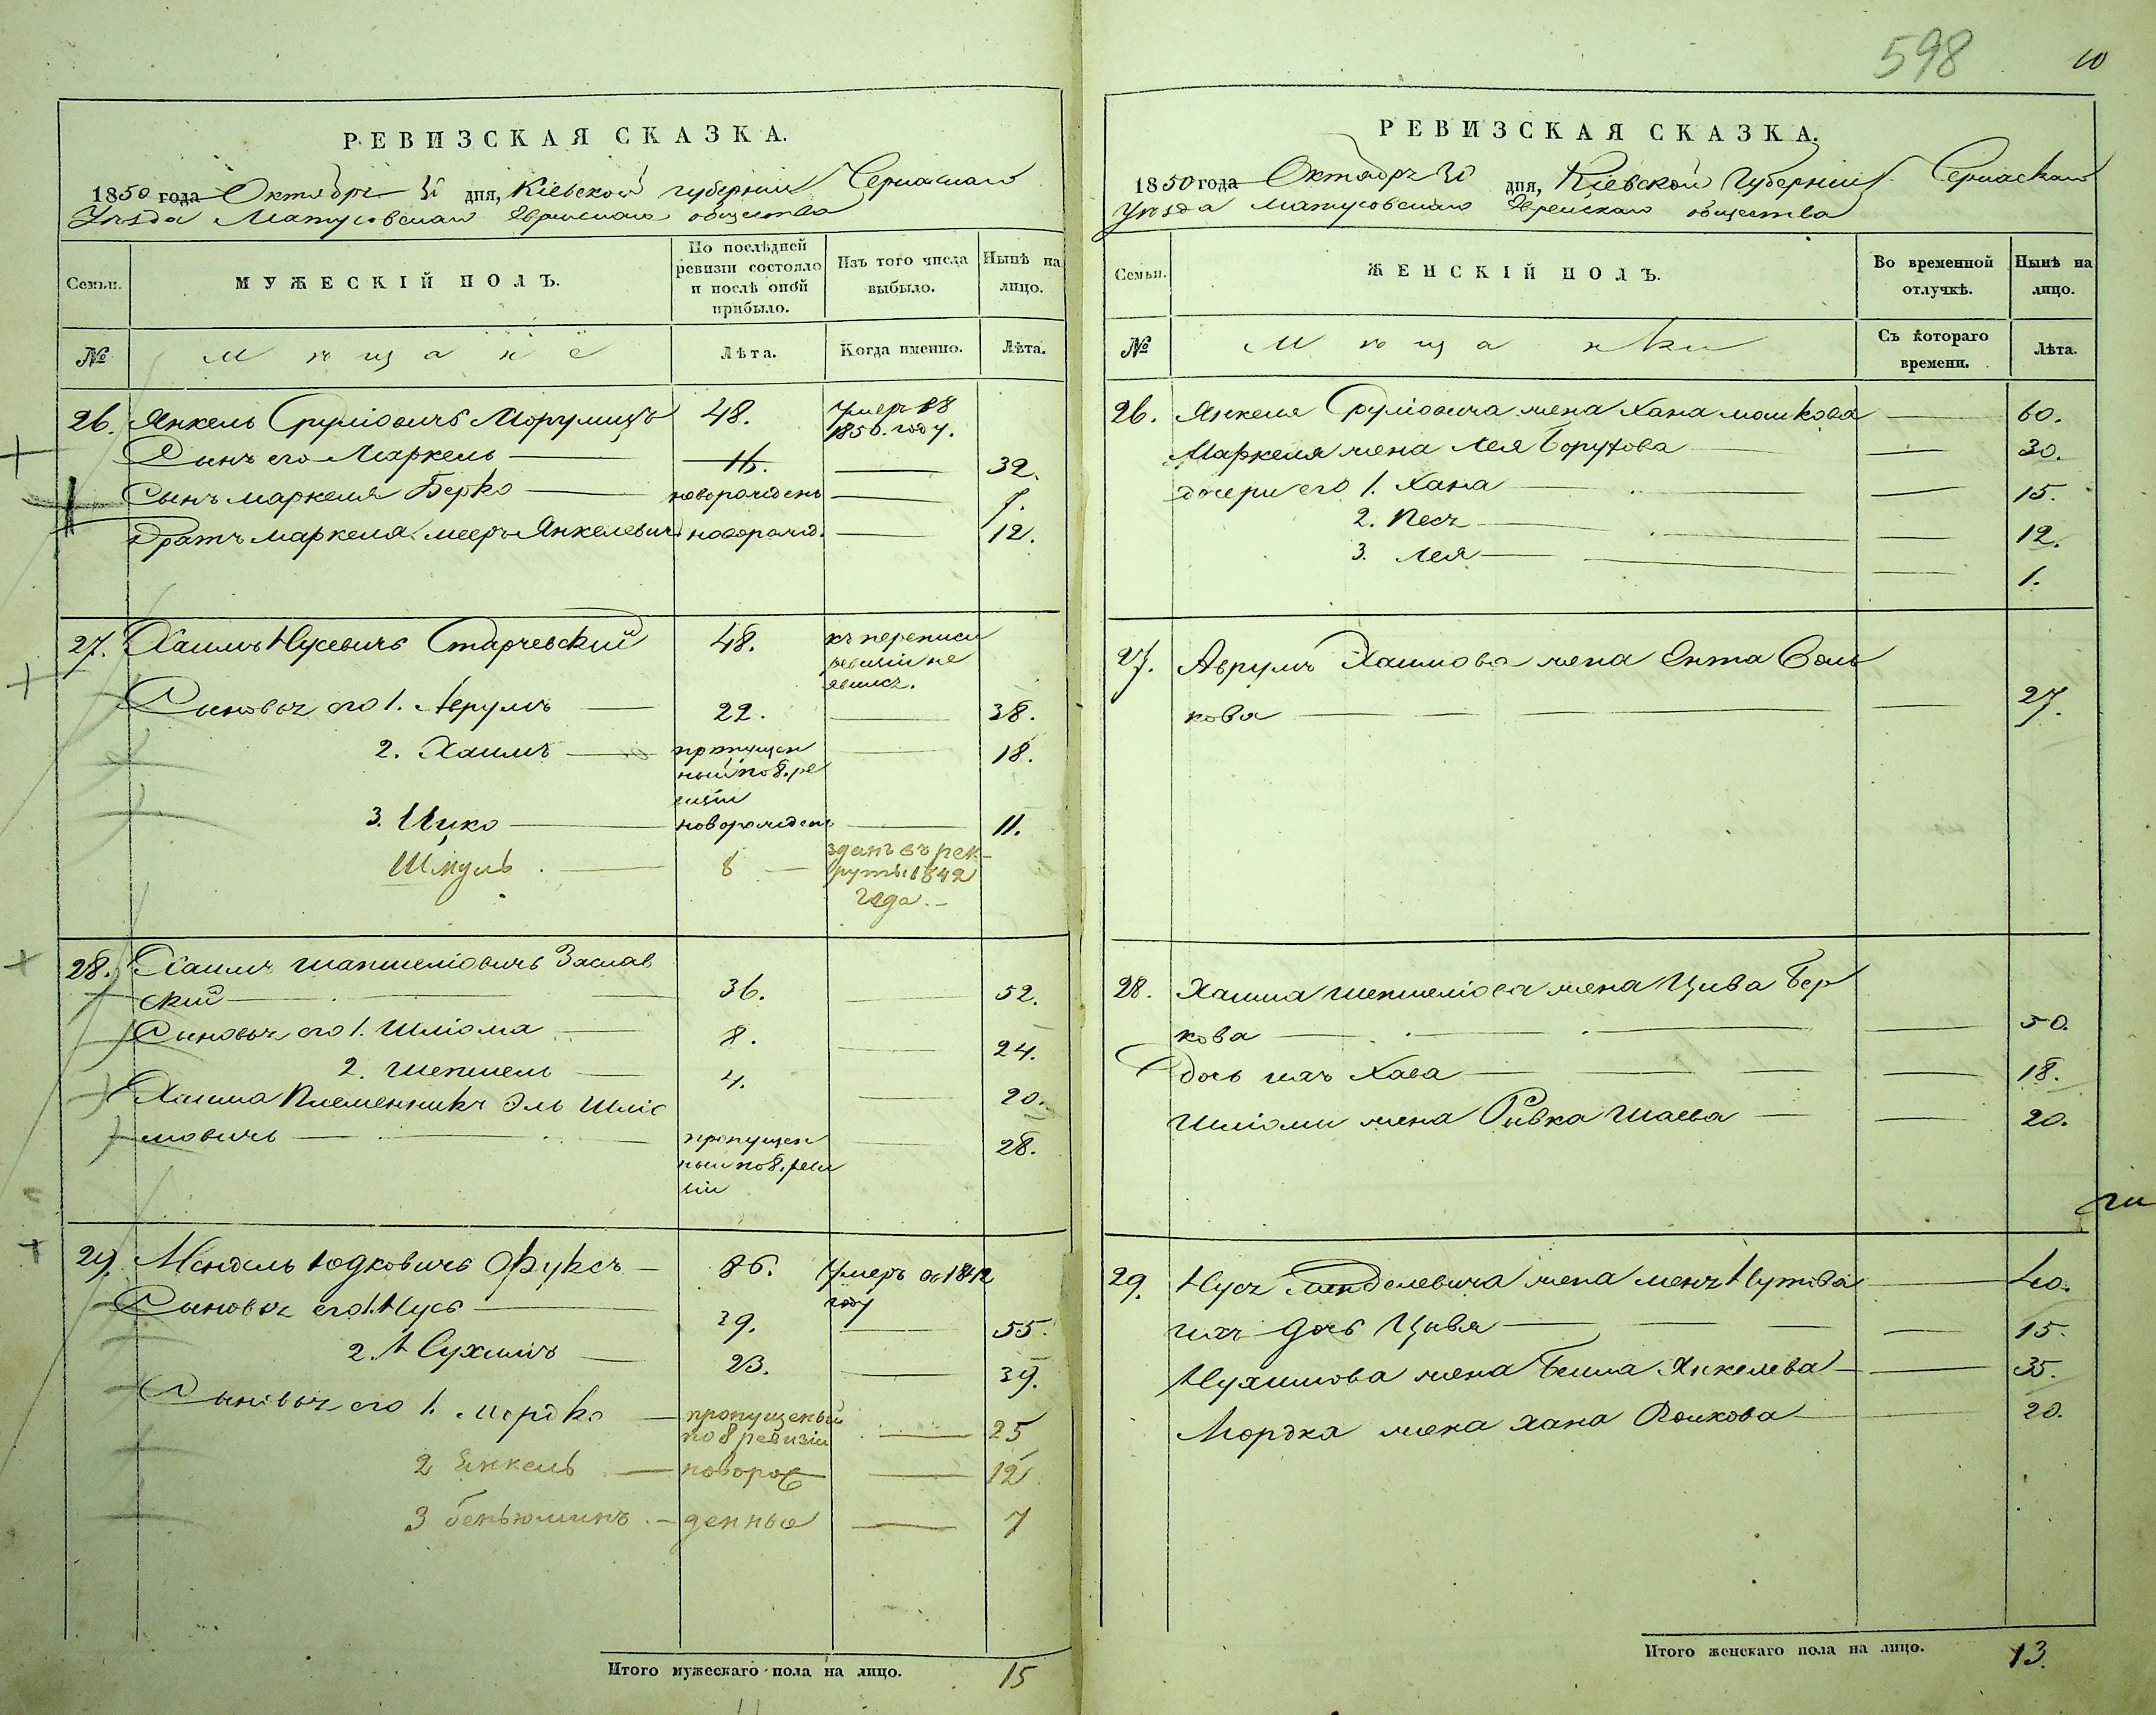 598
10
РЕВИЗСКАЯ СКАЗКА.
1850 года Октября 30 дня, Кіевской губерніи Черкаскаго
Уѣзда Матусовскаго Еврейскаго общества
Семьи.
МУЖЕСКІЙ ПОЛЪ.
По послѣдней ревизіи состояло и послѣ оной прибыло.
Изъ того числа выбыло.
Нынѣ на лицо.
№
Мѣщане
Лѣта.
Когда именно.
Лѣта.
26. Янкель Сруліовичъ 48. умеръ
1850. году.
Сынъ его Маркель 16. 32.
Сынъ маркеля Берко новорожденъ 7.
Братъ маркеля мееръ Янкелевич новорожд. 12.
27. Хаимъ Нусевичъ Старчевский 48. къ переписи
ревизіи не
явилсъ.
Сыновья его 1. Аврумъ 22. 38.
2. Хаимъ пропущен 18.
ный по 8. ре
визіи
3. Ицко новорожденъ 11.
Шмуль 8 зданъ въ рек-
руты 1842
года.
28. Хаимъ шапшеліовичъ Заслав
ский 36. 52.
Сыновья его 1. Шліома 8. 24.
2. Шепшель 4. 20.
Хаима Племенникъ Эль Шліо
мовичъ пропущен 28.
ный по 8. реви
зіи
29. Мендель Юдковичъ Фуксъ 86. Умеръ въ 1842
году
Сыновья его 1. Нусь 39. 55.
2. Нухимъ 23. 39.
Сыновья его 1. Мордко пропущеный 25
по 8 ревизіи
2 Янкель новорож 12
3 беньюминъ денные 7
Итого мужескаго пола на лицо. 15
РЕВИЗСКАЯ СКАЗКА.
1850 года Октября 30 дня, Кіевской Губерніи Черкаскаго
Уѣзда Матусовскаго Еврейскаго общества
Семьи.
ЖЕНСКІЙ ПОЛЪ.
Во временной отлучкѣ.
Нынѣ на лицо.
№
Мѣщанки
Съ котораго времени.
Лѣта.
26. Янкеля Сруліовича жена Хана мошкова 60.
Маркеля жена Лея Борухова 30.
дочери его 1. Хана 15.
2. Песя 12.
3. Лея 1.
27. Аврумъ Хаимова жена Ента Воль
кова 27.
28. Хаима шепшеліова жена Цива Бер
кова 50.
дочь ихъ Хава 18.
Шліомы жена Ривка Шаева 20.
29. Нуся Менделевича жена 40.
ихъ дочь Цивья 15.
Нухимова жена Бейла Янкелева 35.
Мордка жена хана 20.
Итого женскаго пола на лицо. 13.